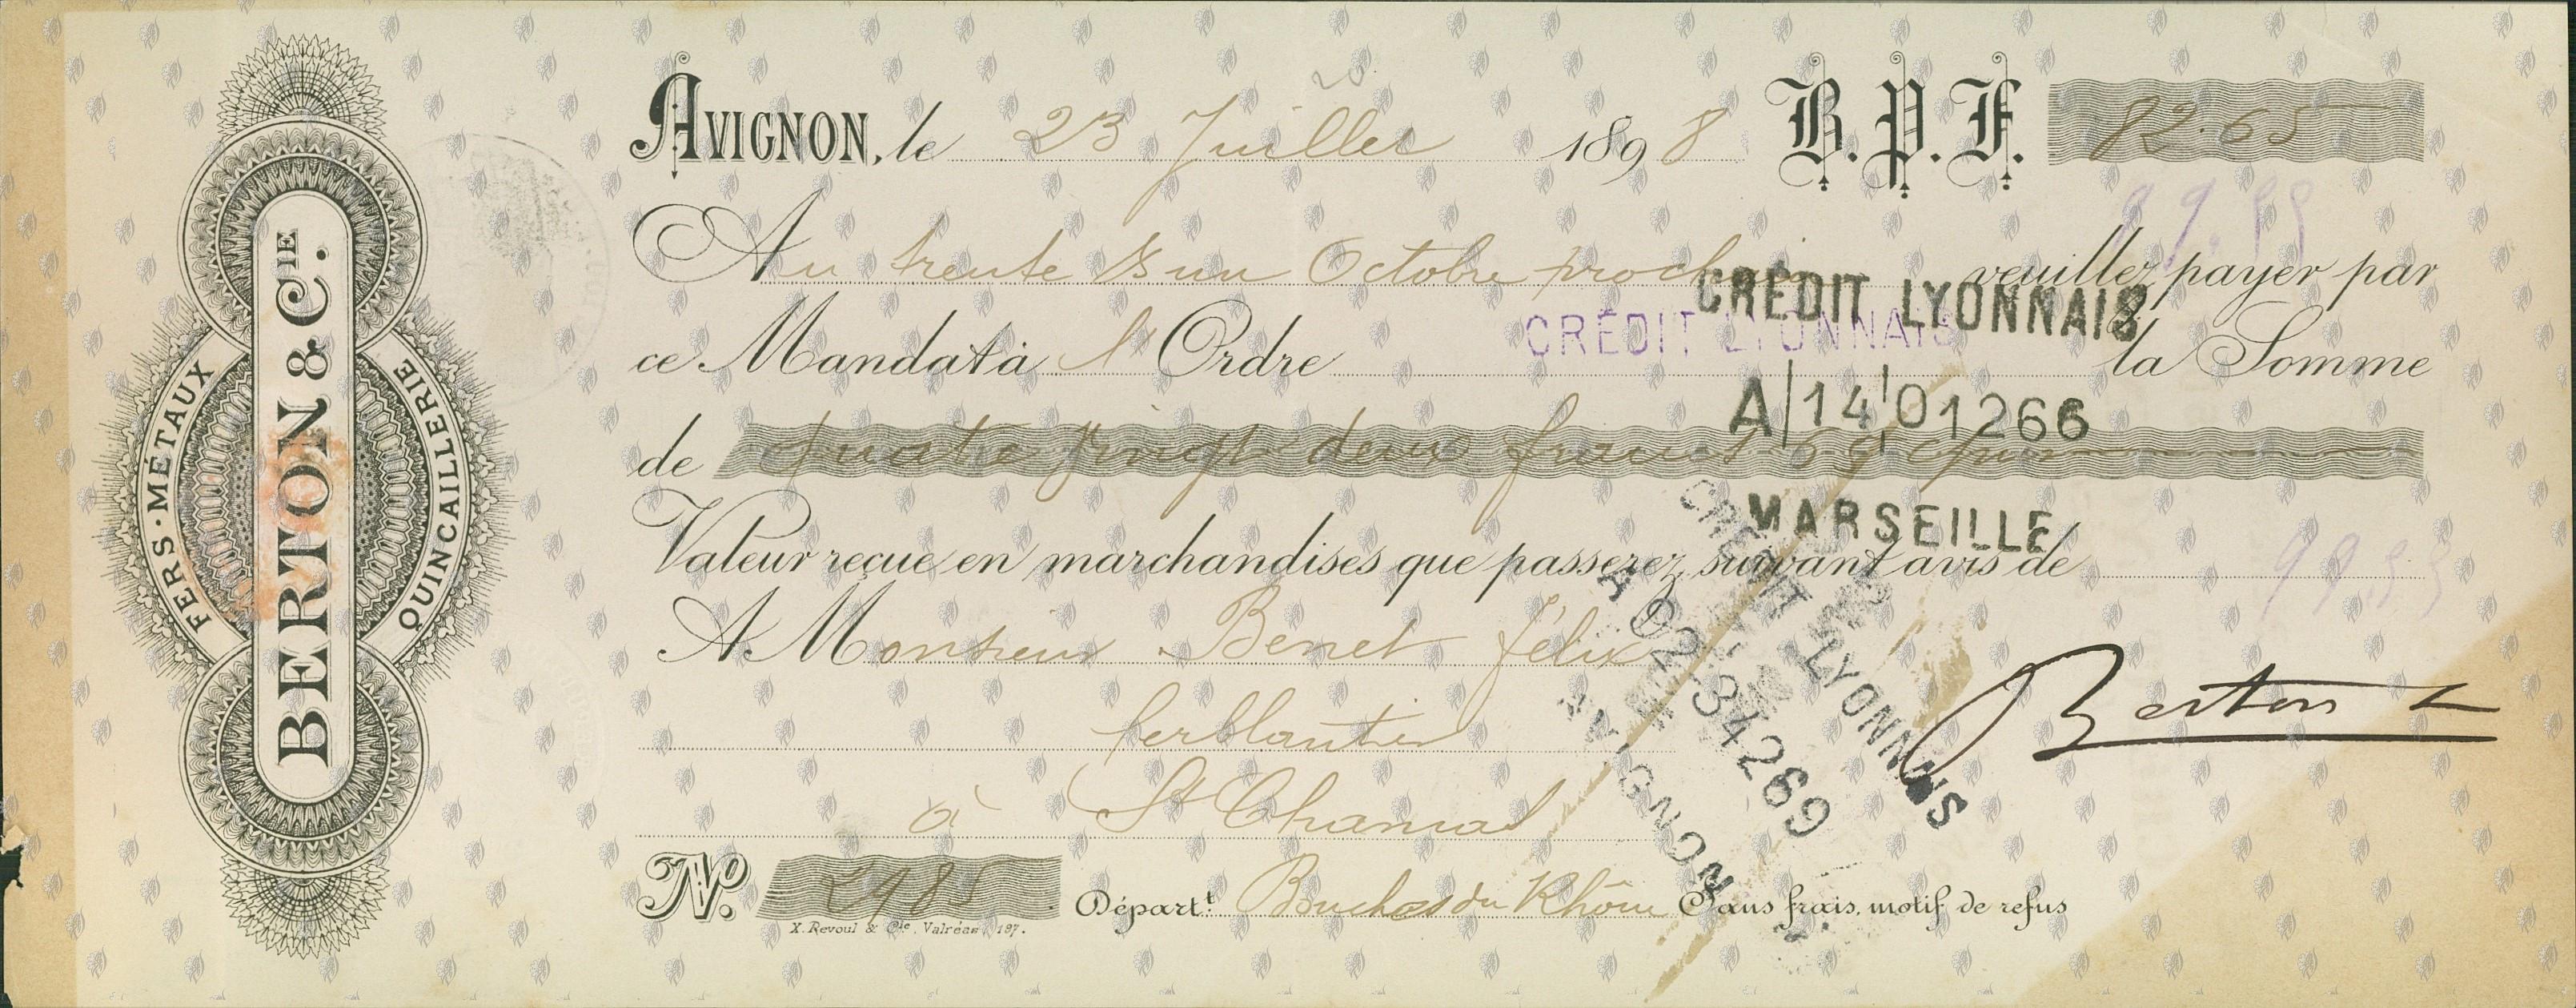 FERS · MÉTAUX
BERTON & CIE.
QUINCAILLERIE
AVIGNON, le 23 Juillet 1898 B.P.F. 82.65
Au trente & un Octobre prochain veuillez payer par
CREDIT LYONNAIS
ce Mandat à l' Ordre CRÉDIT LYONNAIS la Somme
A/14/01266
de quatre vingt deux francs 65 c
MARSEILLE
Valeur reçue en marchandises que passerez, suivant avis de
A Monsieur Benet Félix
ferblantier
à St Chamas
Berton
CREDIT LYONNAIS
A 02-34269
AVIGNON
No. 2985 Départt. Bouches du Rhône Sans frais, motif de refus
X. Revoul & Cie, Valréas, 197.